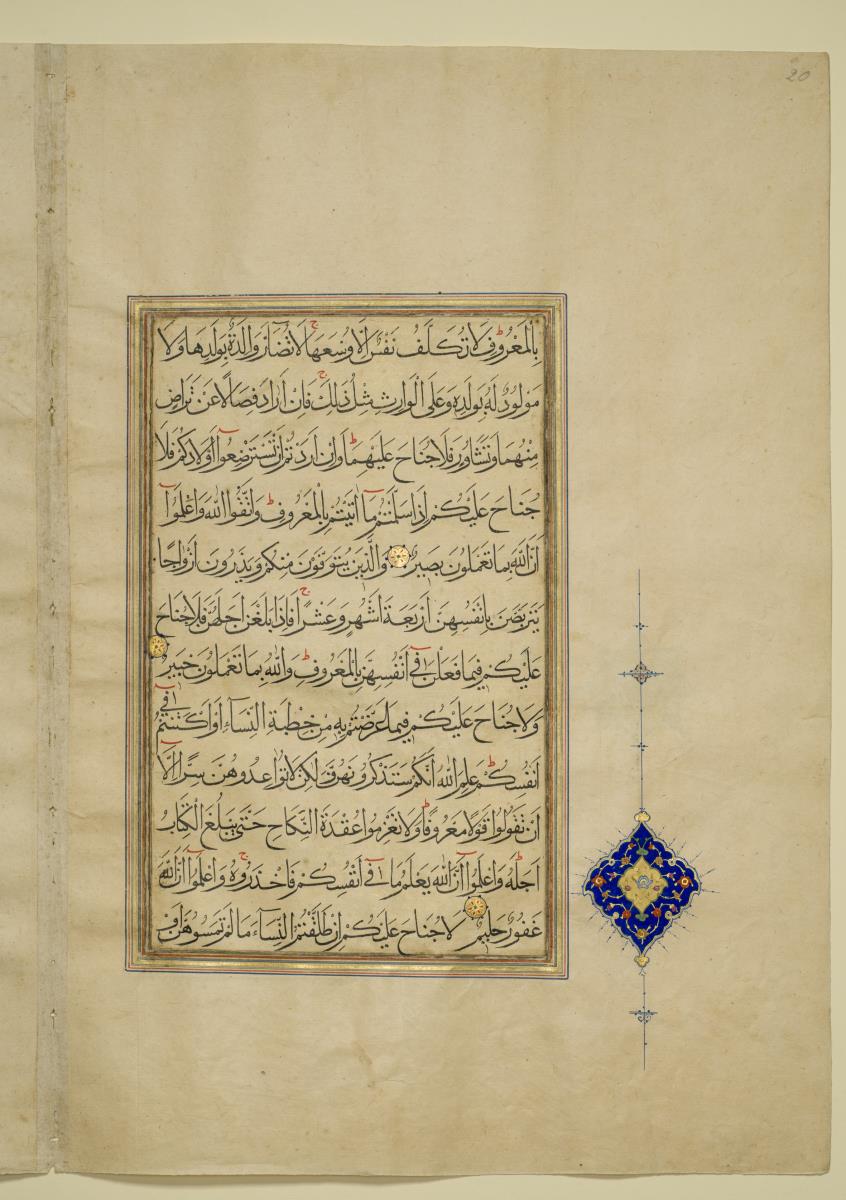 20
بِالْمَعْرُوفِ لَا تُكَلَّفُ نَفْسٌ إِلَّا وُسْعَهَا لَا تُضَارَّ وَالِدَةٌ بِوَلَدِهَا وَلَا
مَوْلُودٌ لَهُ بِوَلَدِهِ وَعَلَى الْوَارِثِ مِثْلُ ذَلِكَ فَإِنْ أَرَادَ فِصَالًا عَنْ تَرَاضٍ
مِنْهُمَا وَتَشَاوُرٍ فَلَا جُنَاحَ عَلَيْهِمَا وَإِنْ أَرَدْتُمْ أَنْ تَسْتَرْضِعُوا أَوْلَادَكُمْ فَلَا
جُنَاحَ عَلَيْكُمْ إِذَا سَلَّمْتُمْ مَا آتَيْتُمْ بِالْمَعْرُوفِ وَاتَّقُوا اللَّهَ وَاعْلَمُوا
أَنَّ اللَّهَ بِمَا تَعْمَلُونَ بَصِيرٌ وَالَّذِينَ يُتَوَفَّوْنَ مِنْكُمْ وَيَذَرُونَ أَزْوَاجًا
يَتَرَبَّصْنَ بِأَنْفُسِهِنَّ أَرْبَعَةَ أَشْهُرٍ وَعَشْرًا فَإِذَا بَلَغْنَ أَجَلَهُنَّ فَلَا جُنَاحَ
عَلَيْكُمْ فِيمَا فَعَلْنَ فِي أَنْفُسِهِنَّ بِالْمَعْرُوفِ وَاللَّهُ بِمَا تَعْمَلُونَ خَبِيرٌ
وَلَا جُنَاحَ عَلَيْكُمْ فِيمَا عَرَّضْتُمْ بِهِ مِنْ خِطْبَةِ النِّسَاءِ أَوْ أَكْنَنْتُمْ فِي
أَنْفُسِكُمْ عَلِمَ اللَّهُ أَنَّكُمْ سَتَذْكُرُونَهُنَّ وَلَكِنْ لَا تُوَاعِدُوهُنَّ سِرًّا إِلَّا
أَنْ تَقُولُوا قَوْلًا مَعْرُوفًا وَلَا تَعْزِمُوا عُقْدَةَ النِّكَاحِ حَتَّى يَبْلُغَ الْكِتَابُ
أَجَلَهُ وَاعْلَمُوا أَنَّ اللَّهَ يَعْلَمُ مَا فِي أَنْفُسِكُمْ فَاحْذَرُوهُ وَاعْلَمُوا أَنَّ اللَّهَ
غَفُورٌ حَلِيمٌ لَا جُنَاحَ عَلَيْكُمْ إِنْ طَلَّقْتُمُ النِّسَاءَ مَا لَمْ تَمَسُّوهُنَّ أَوْ